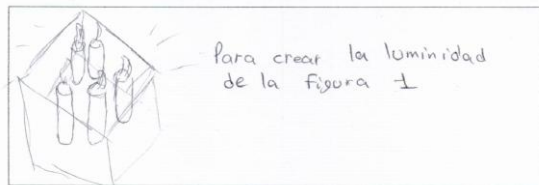 Para crear la luminidad
de la figura 1